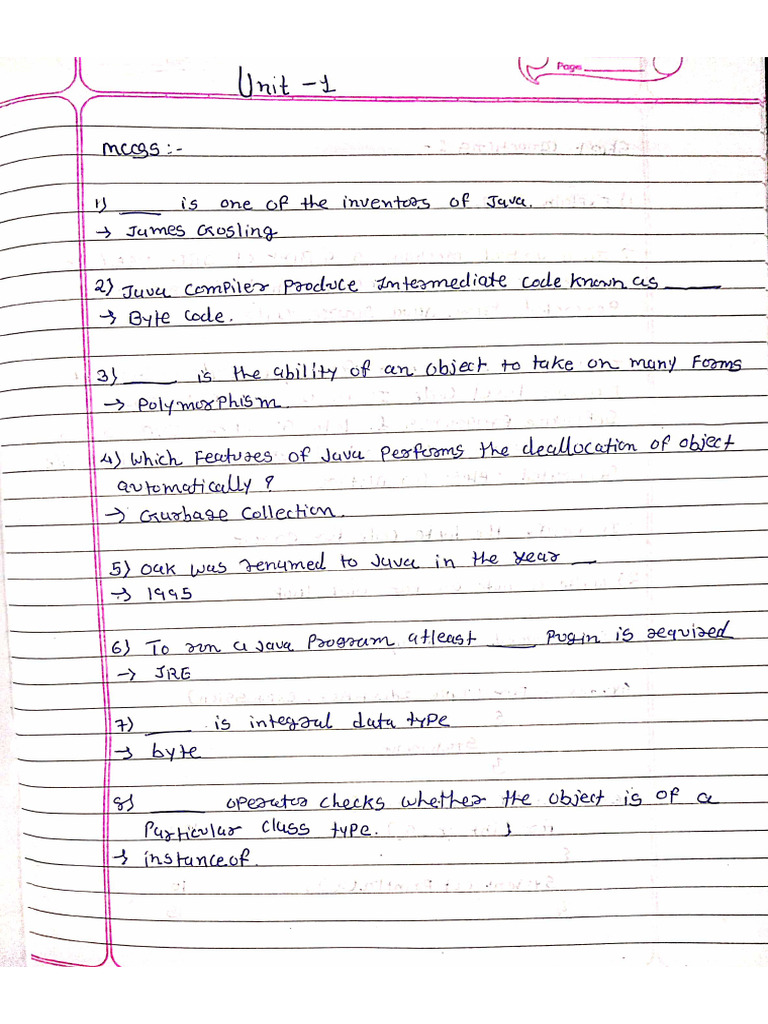 Page
Unit - 1
MCQS :-
1) ____ is one of the inventors of Java.
→ James Gosling
2) Java compiler produce Intermediate code known as ____
→ Byte code.
3) ____ is the ability of an object to take on many forms
→ Polymorphism.
4) Which features of Java performs the deallocation of object
automatically ?
→ Garbage collection.
5) Oak was renamed to Java in the year __
→ 1995
6) To run a Java program atleast ____ pugin is required
→ JRE
7) ____ is integral data type
→ byte
8) ____ operator checks whether the object is of a
particular class type.
→ instanceof.